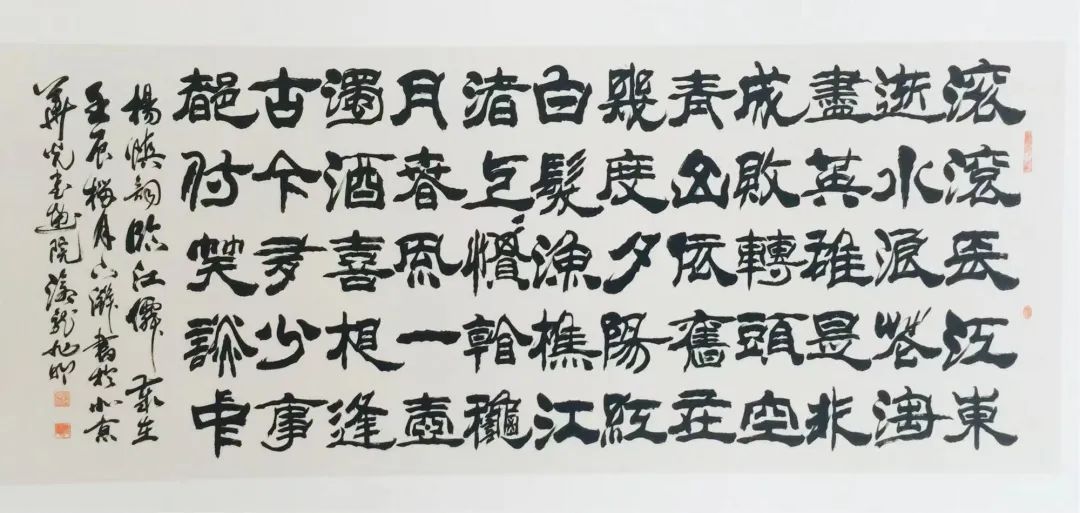 滚滚長江東
逝水浪花淘
盡英雄是非
成敗轉頭空
青山依舊在
幾度夕陽紅
白髮漁樵江
渚上慣看龝
月春風一壺
濁酒喜相逢
古今多少事
都付笑談中
楊慎詞臨江僊 歲在
壬辰梅月書於北京
書畫院